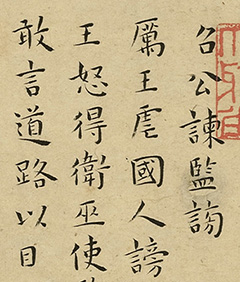 召公諫監謗
厲王虐國人謗
王怒得衛巫使
敢言道路以目